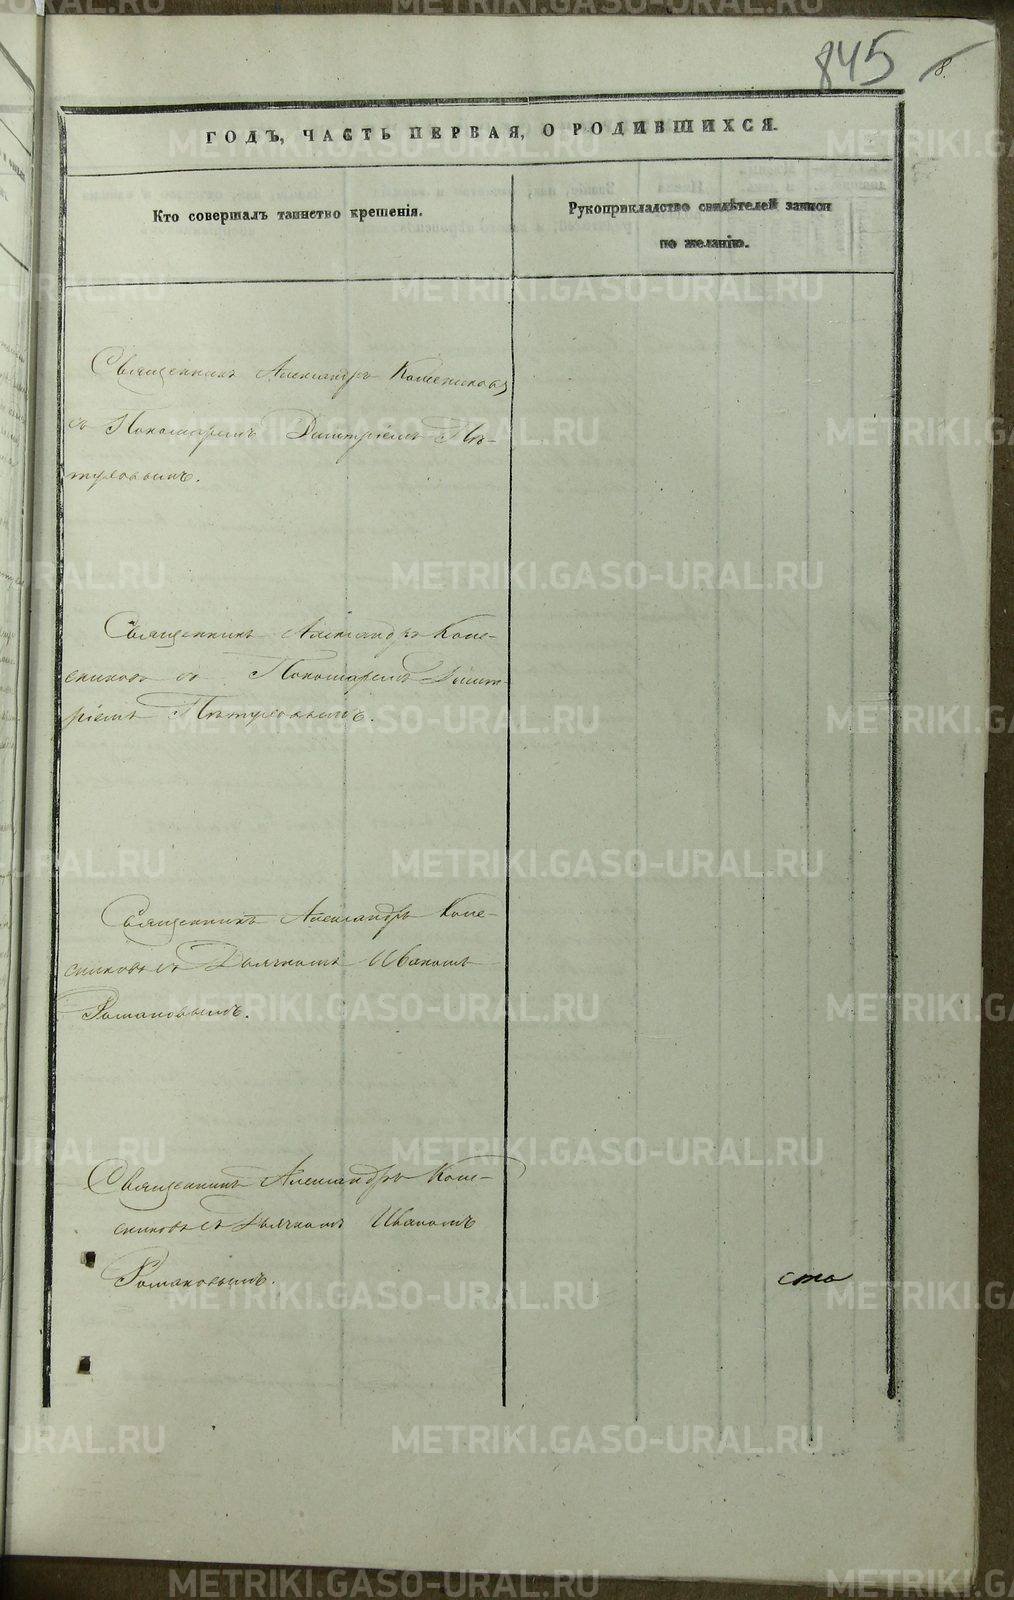 845 8.
ГОДЪ, ЧАСТЬ ПЕРВАЯ, О РОДИВШИХСЯ.
Кто совершалъ таинство крещенія.
Рукоприкладство свидѣтелей записи
по желанію.
Священникъ Александръ Колесниковъ
съ Пономаремъ Димитріемъ Пѣ-
туховымъ.
Священникъ Александръ Коле-
сниковъ съ Пономаремъ Димит-
ріемъ Пѣтуховымъ.
Священникъ Александръ Коле-
сниковъ съ Дьячкомъ Иваномъ
Романовымъ.
Священникъ Александръ Коле-
сниковъ съ Дьячкомъ Иваномъ
Романовымъ.
сто
METRIKI.GASO-URAL.RU